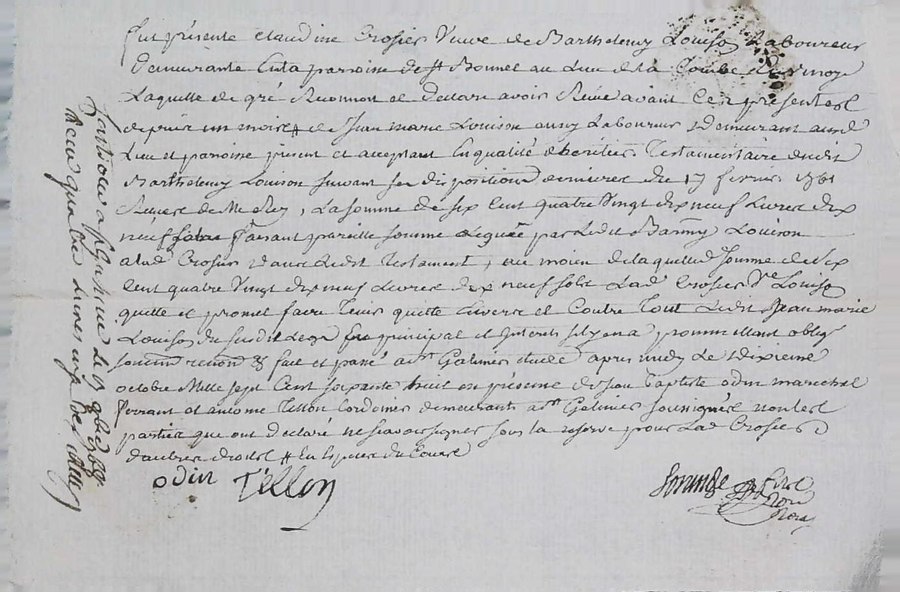 fut présente claudine Crosier Veuve de Barthelemy Louison Laboureur
demeurante en la parroisse de st Bonnet au Lieu de la
Laquelle de gré Reconnoit et declare avoir Receu avant Ces presentes
depuis un mois # de Jean marie Louison aussy Laboureur demeurant aud
Lieu et parroisse present et acceptant En qualité d'heritier Testamentaire dudit
Barthelemy Louison suivant ses dispositions dernieres du 17 fevrier 1761
Reçues de Me Rey, La somme de six Cent quatre Vingt dix neuf Livres dix
neuf faisant pareille somme leguée par Ledit Barmy Louison
alad Crosier dans Ledit Testament, au moien de laquelle somme de six
Cent quatre Vingt dix neuf Livres dix neuf sols Lad Crosier Ve Louison
quitte et promet faire Tenir quitte Envers et Contre Tout Ledit Jean marie
Louison du susdit Legs En principal et Interets promettant oblig
soum renon & fait et passé a st Galmier étude apres midy Le dixieme
octobre Mille sept Cent soixante huit en présence de Jean Baptiste odin marechal
ferrant et antoine Tellon Cordonier demeurants a st Galmier soussignés non les
parties qui ont déclaré ne scavoir signer sous la reserve pour Lad Crosier
d'autres droits # En Especes du Cours
odin Tellon
Controllé a st Galmier le 19 1768
Recu quatre Livres